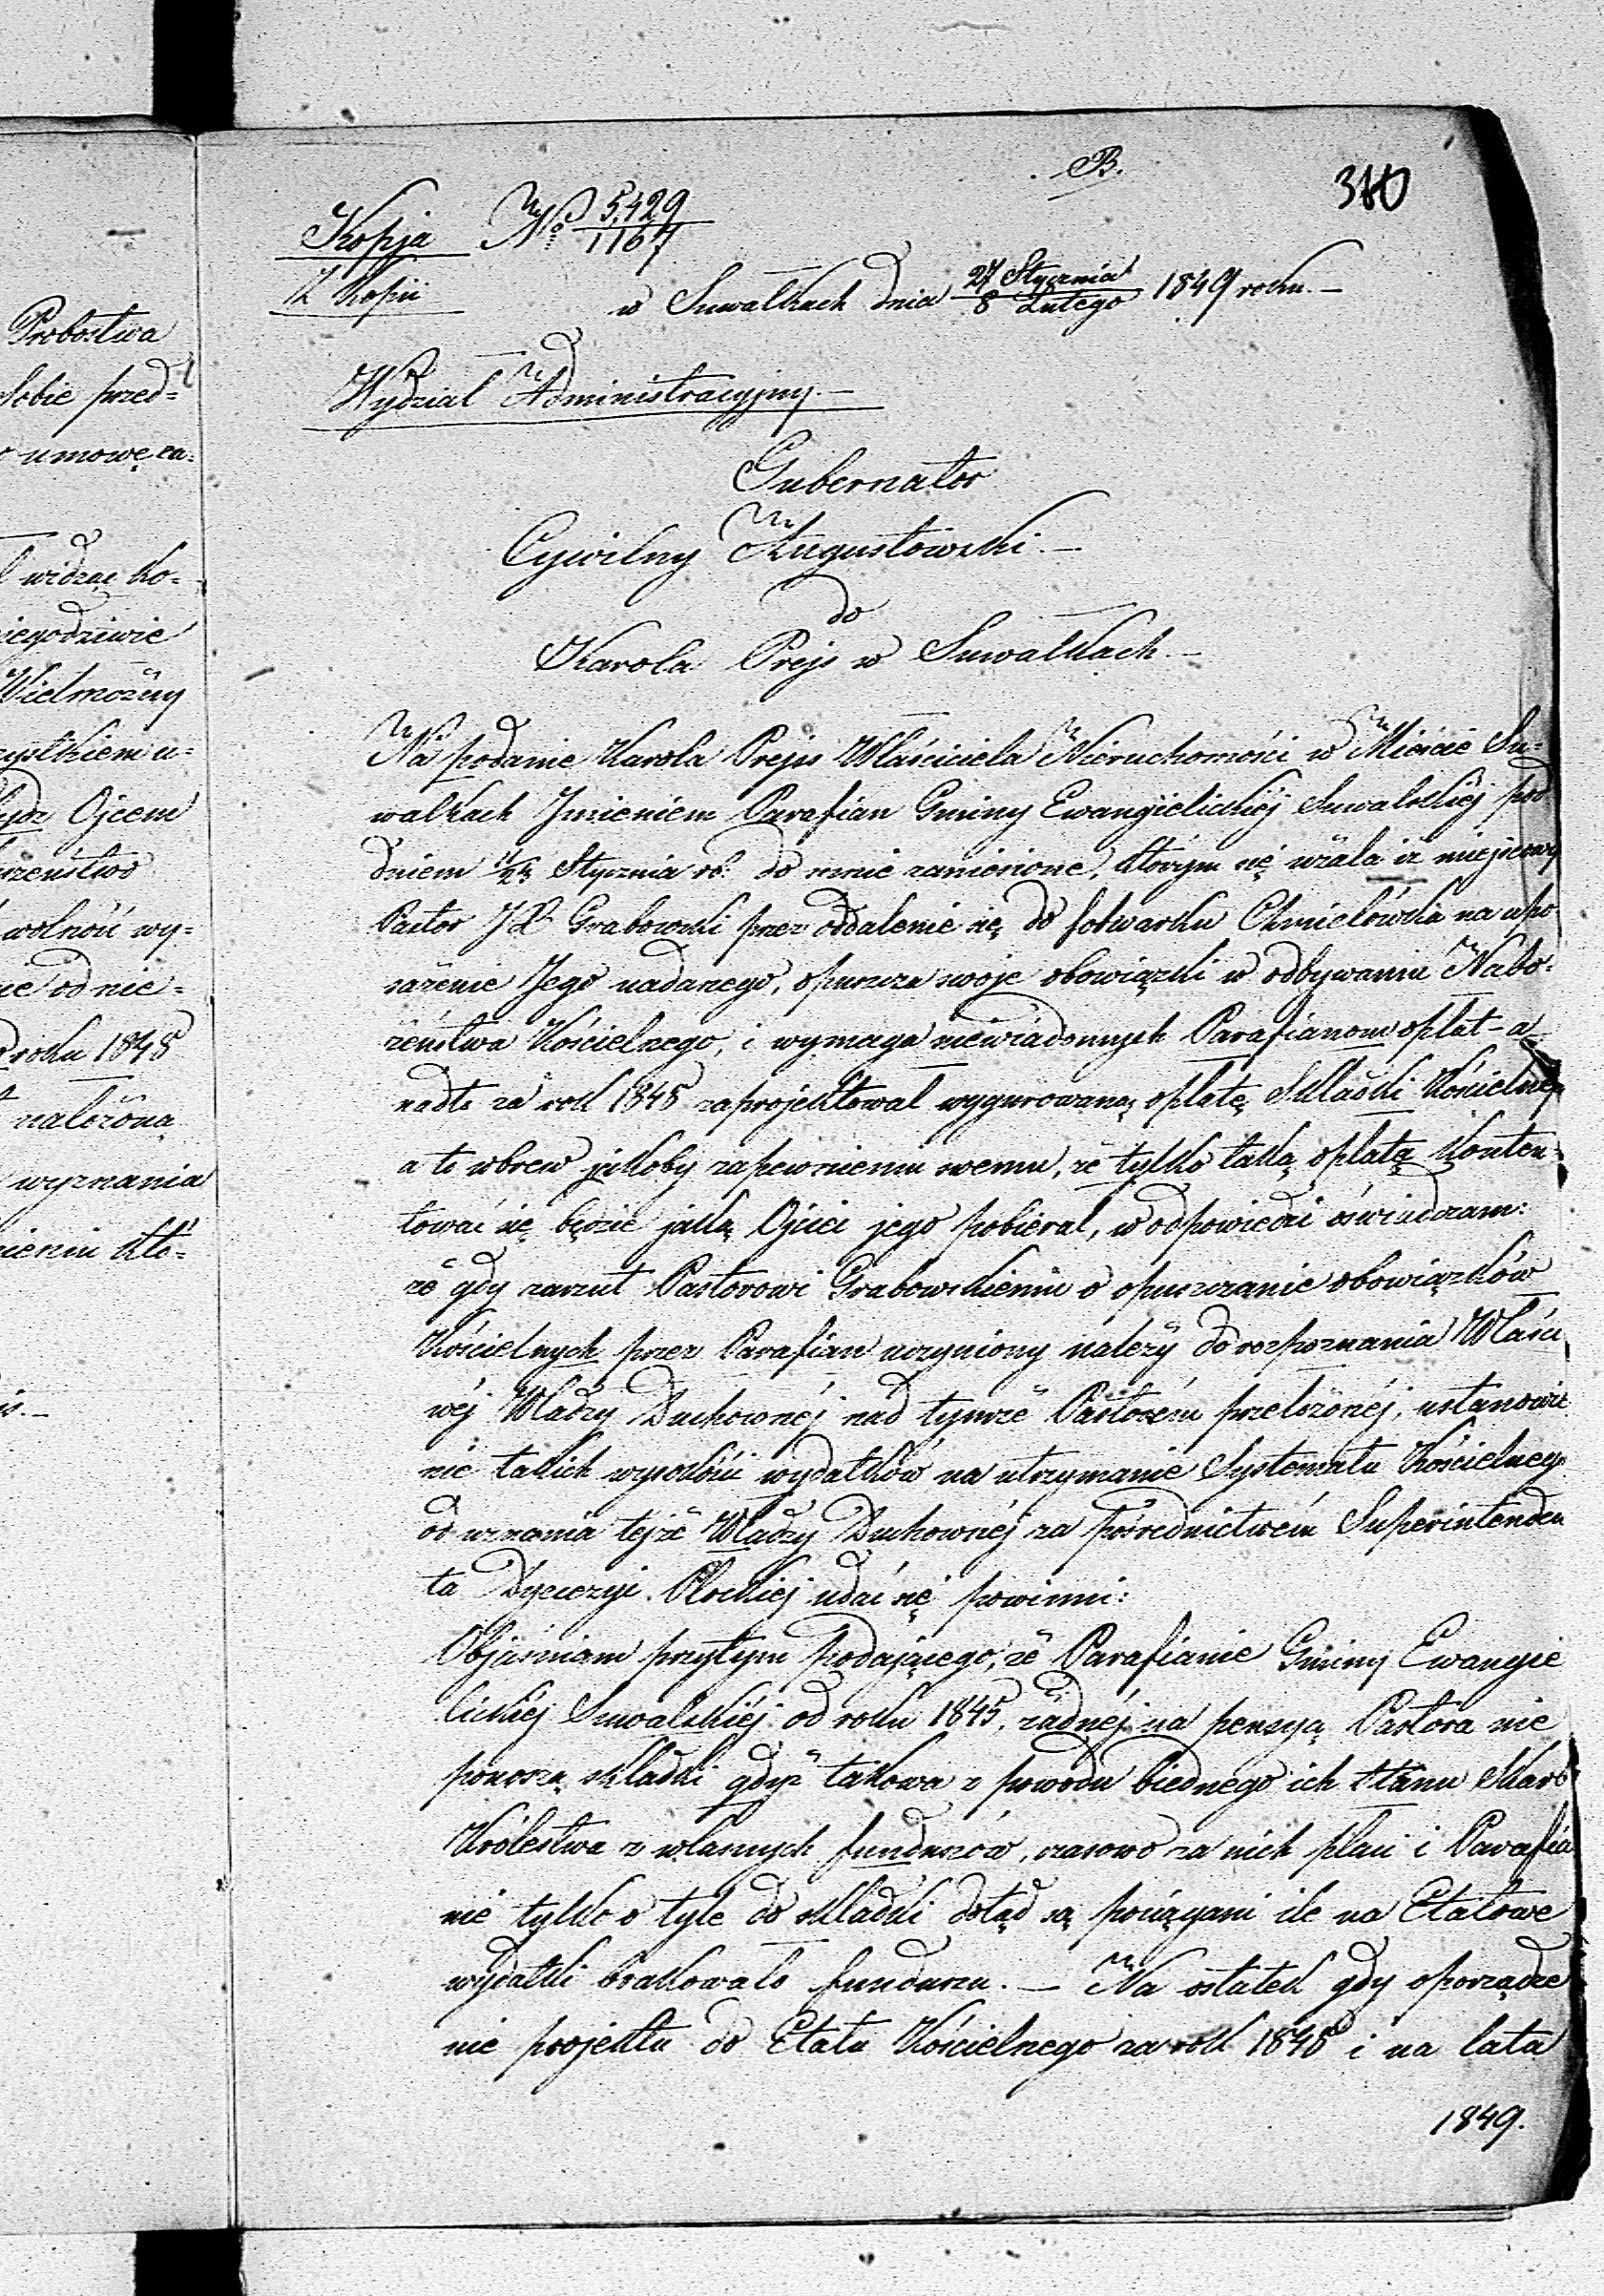 B.
380
Kopja № 5,429
1167
Z Kopii
w Suwałkach dnia 27 Stycznia 1849 roku.—
8 Lutego
Wydział Administracyjny.—
Gubernator
Cywilny Augustowski.—
do
Karola Prejs w Suwałkach.—
Na podanie Karola Prejss Właściciela Nieruchomości w Mieście Su-
wałkach Jmieniem Parafian Gminy Ewangielickiéj Suwalskiéj pod
dniem Stycznia rb: do mnie zaniesione, którym się użala iż miejscowy
Pastor Grabowski przez oddalenie się do folwarku Chmielówka na upo-
sażenie Jego nadanego, opuszcza swoje obowiązki w odbywaniu Nabo-
żeństwa Kościelnego, i wymaga niewiadomych Parafianom opłat – a
nadto za rok 1848 zaprojektował wygurowaną opłatę Składki Kościelnéj
a to wbrew jakoby zapewnieniu swemu, że tylko taką opłatą konten-
tować się będzie jaką Ojciec jego pobierał, w odpowiedzi oświadczam:
że gdy zarzut Pastorowi Grabowskiemu o opuszczanie obowiązków
Kościelnych przez Parafian uczyniony należy do rozpoznania Właści
wéj Władzy Duchownéj nad tymże Pastorem przełożonéj, ustanowie
nie takich wysokości wydatków na utrzymanie Systematu Kościelnego
od uznania tejże Władzy Duchownéj za pośrednictwem Superintenden
ta Dyecezyi Płockiej udać się powinni:
Objaśniam przytym podającego, że Parafianie Gminy Ewangie
lickiéj Suwalskiéj od roku 1845, żadnéj na pensyą Pastora nie
ponoszą składki gdyż takowa z powodu biednego ich stanu Skarb
Królestwa z własnych funduszów, czasowo za nich płaci i Parafia
nie tylko o tyle do składki dotąd są pociągani ile na Etatowe
wydatki brakowało funduszu.— Na ostatek gdy sporządze
nie projektu do Etatu Kościelnego za rok 1848 i na lata
1849.
Probostwa
Sobie przed-
umowę za-
widząc Ko-
niegodziwie
Wielmożny
u-
Ojcem
wolność wy-
od nie-
roku 1848
nałożoną
wyznania